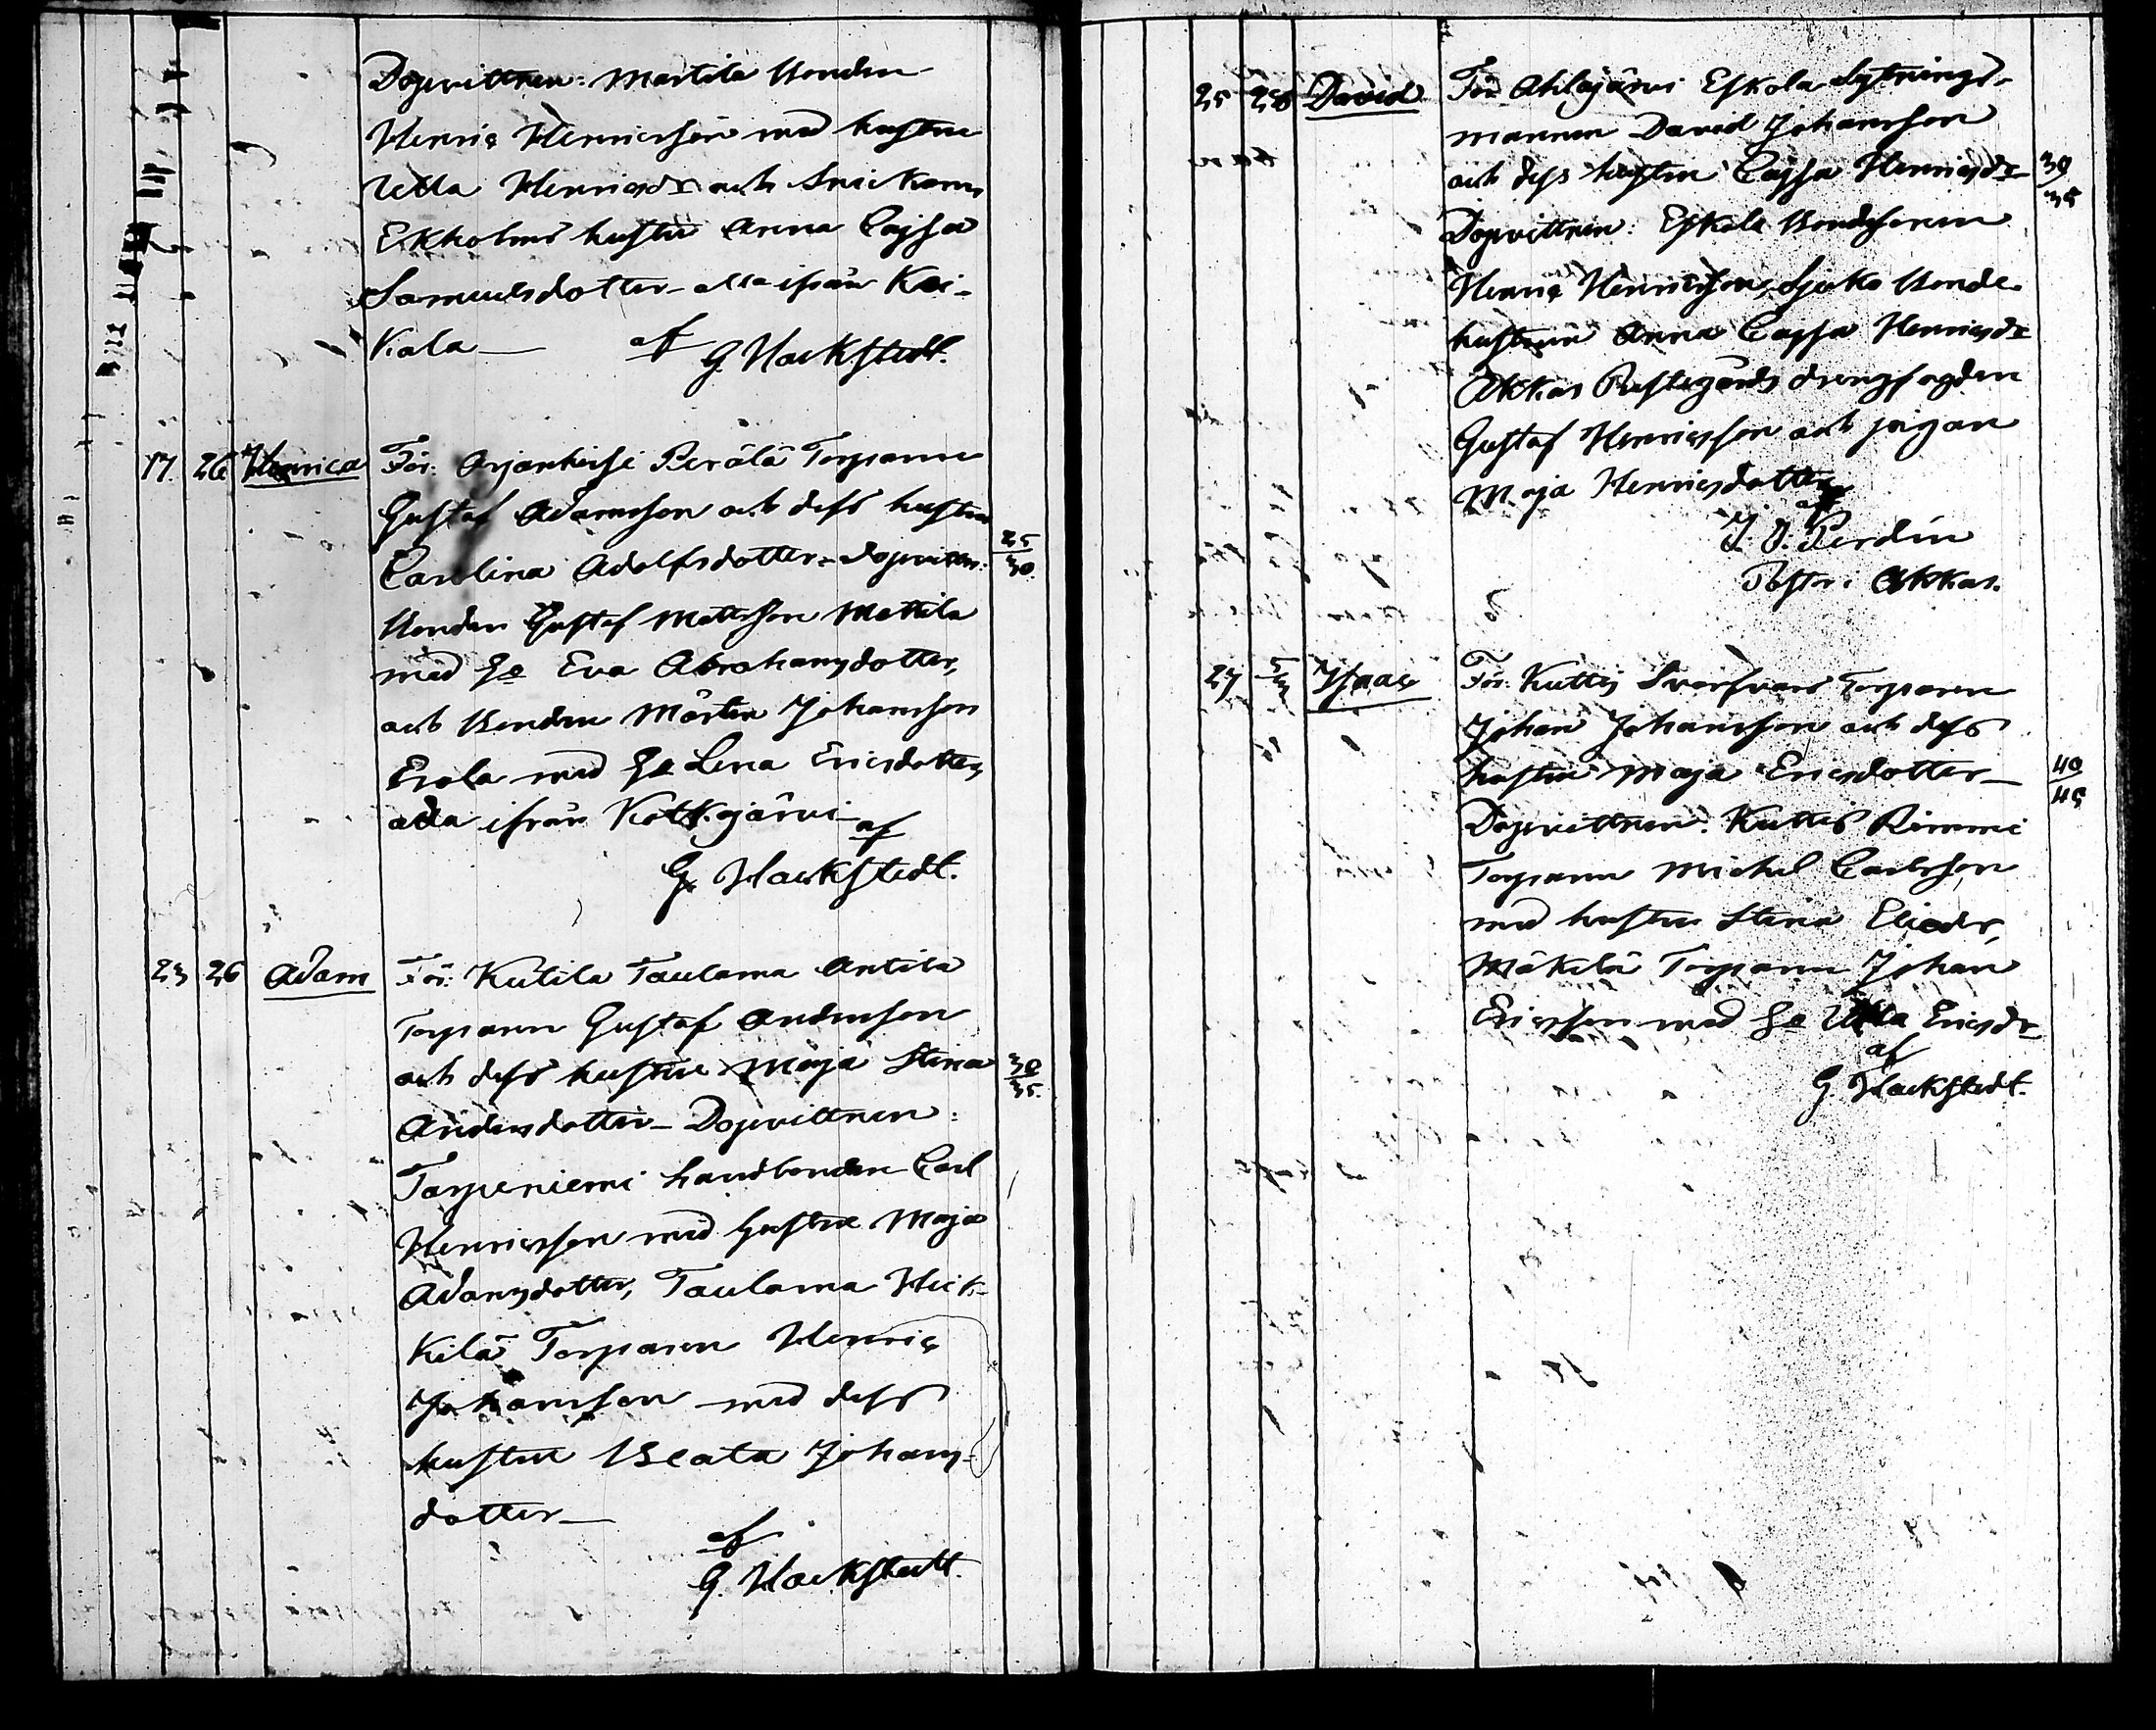 Dopvittnen: Martila Bonden
Henric Henricsson med hustru
Ulla Henricsdr och Snickaren
Ekholms hustru Anna Cajsa
Samuelsdotter – alla ifrån Kei-
kala — af G Hackstedt.
17. 26 Henrica För: Arjanheisi Perälä Torparen
Gustaf Adamsson och dess hustru
Carolina Adolfsdotter – Dopvittn: 25/30.
Bonden Gustaf Mattsson Mattila
med H:u Eva Abrahamsdotter,
och Bonden Mårten Johansson
Erola med H:u Lena Ericsdotter,
alla ifrån Kotkajärvi – af
G. Hackstedt.
23 26 Adam För: Kutila Taulama Antila
Torparen Gustaf Andersson
och dess hustru Maja Stina 30/35.
Andersdotter – Dopvittnen:
Tarpeniemi landbonden Carl
Henricsson med hustru Maja
Adamsdotter, Taulama Heik-
kilä Torparen Henric
Johansson med dess
hustru Beata Johans-
dotter —
af
G. Hackstedt.
25 28 David För Ahlajärvi Eskola Sytnings-
mannen David Johansson
och dess hustru Cajsa Henricsdr 30/35
Dopvittnen: Eskola Bondesonen
Henric Henricsson, Sjuko Bonde-
hustrun Anna Cajsa Henricsdr
Akkas Prestegårds drengfogden
Gustaf Henricsson och pigan
Maja Henricsdotter
af
J. D. Perdin
Pastor i Akkas.
27 Isaac För: Kuttis Svarfvars Torparen
Johan Johansson och dess
hustru Maja Ericsdotter – 40/45
Dopvittnen: Kuttis Rimmi
Torparen Michel Carlsson
med hustru Stina Eliedr,
Mäkilä Torparen Johan
Ericsson med H:u Ulla Ericsdr
af
G. Hackstedt.